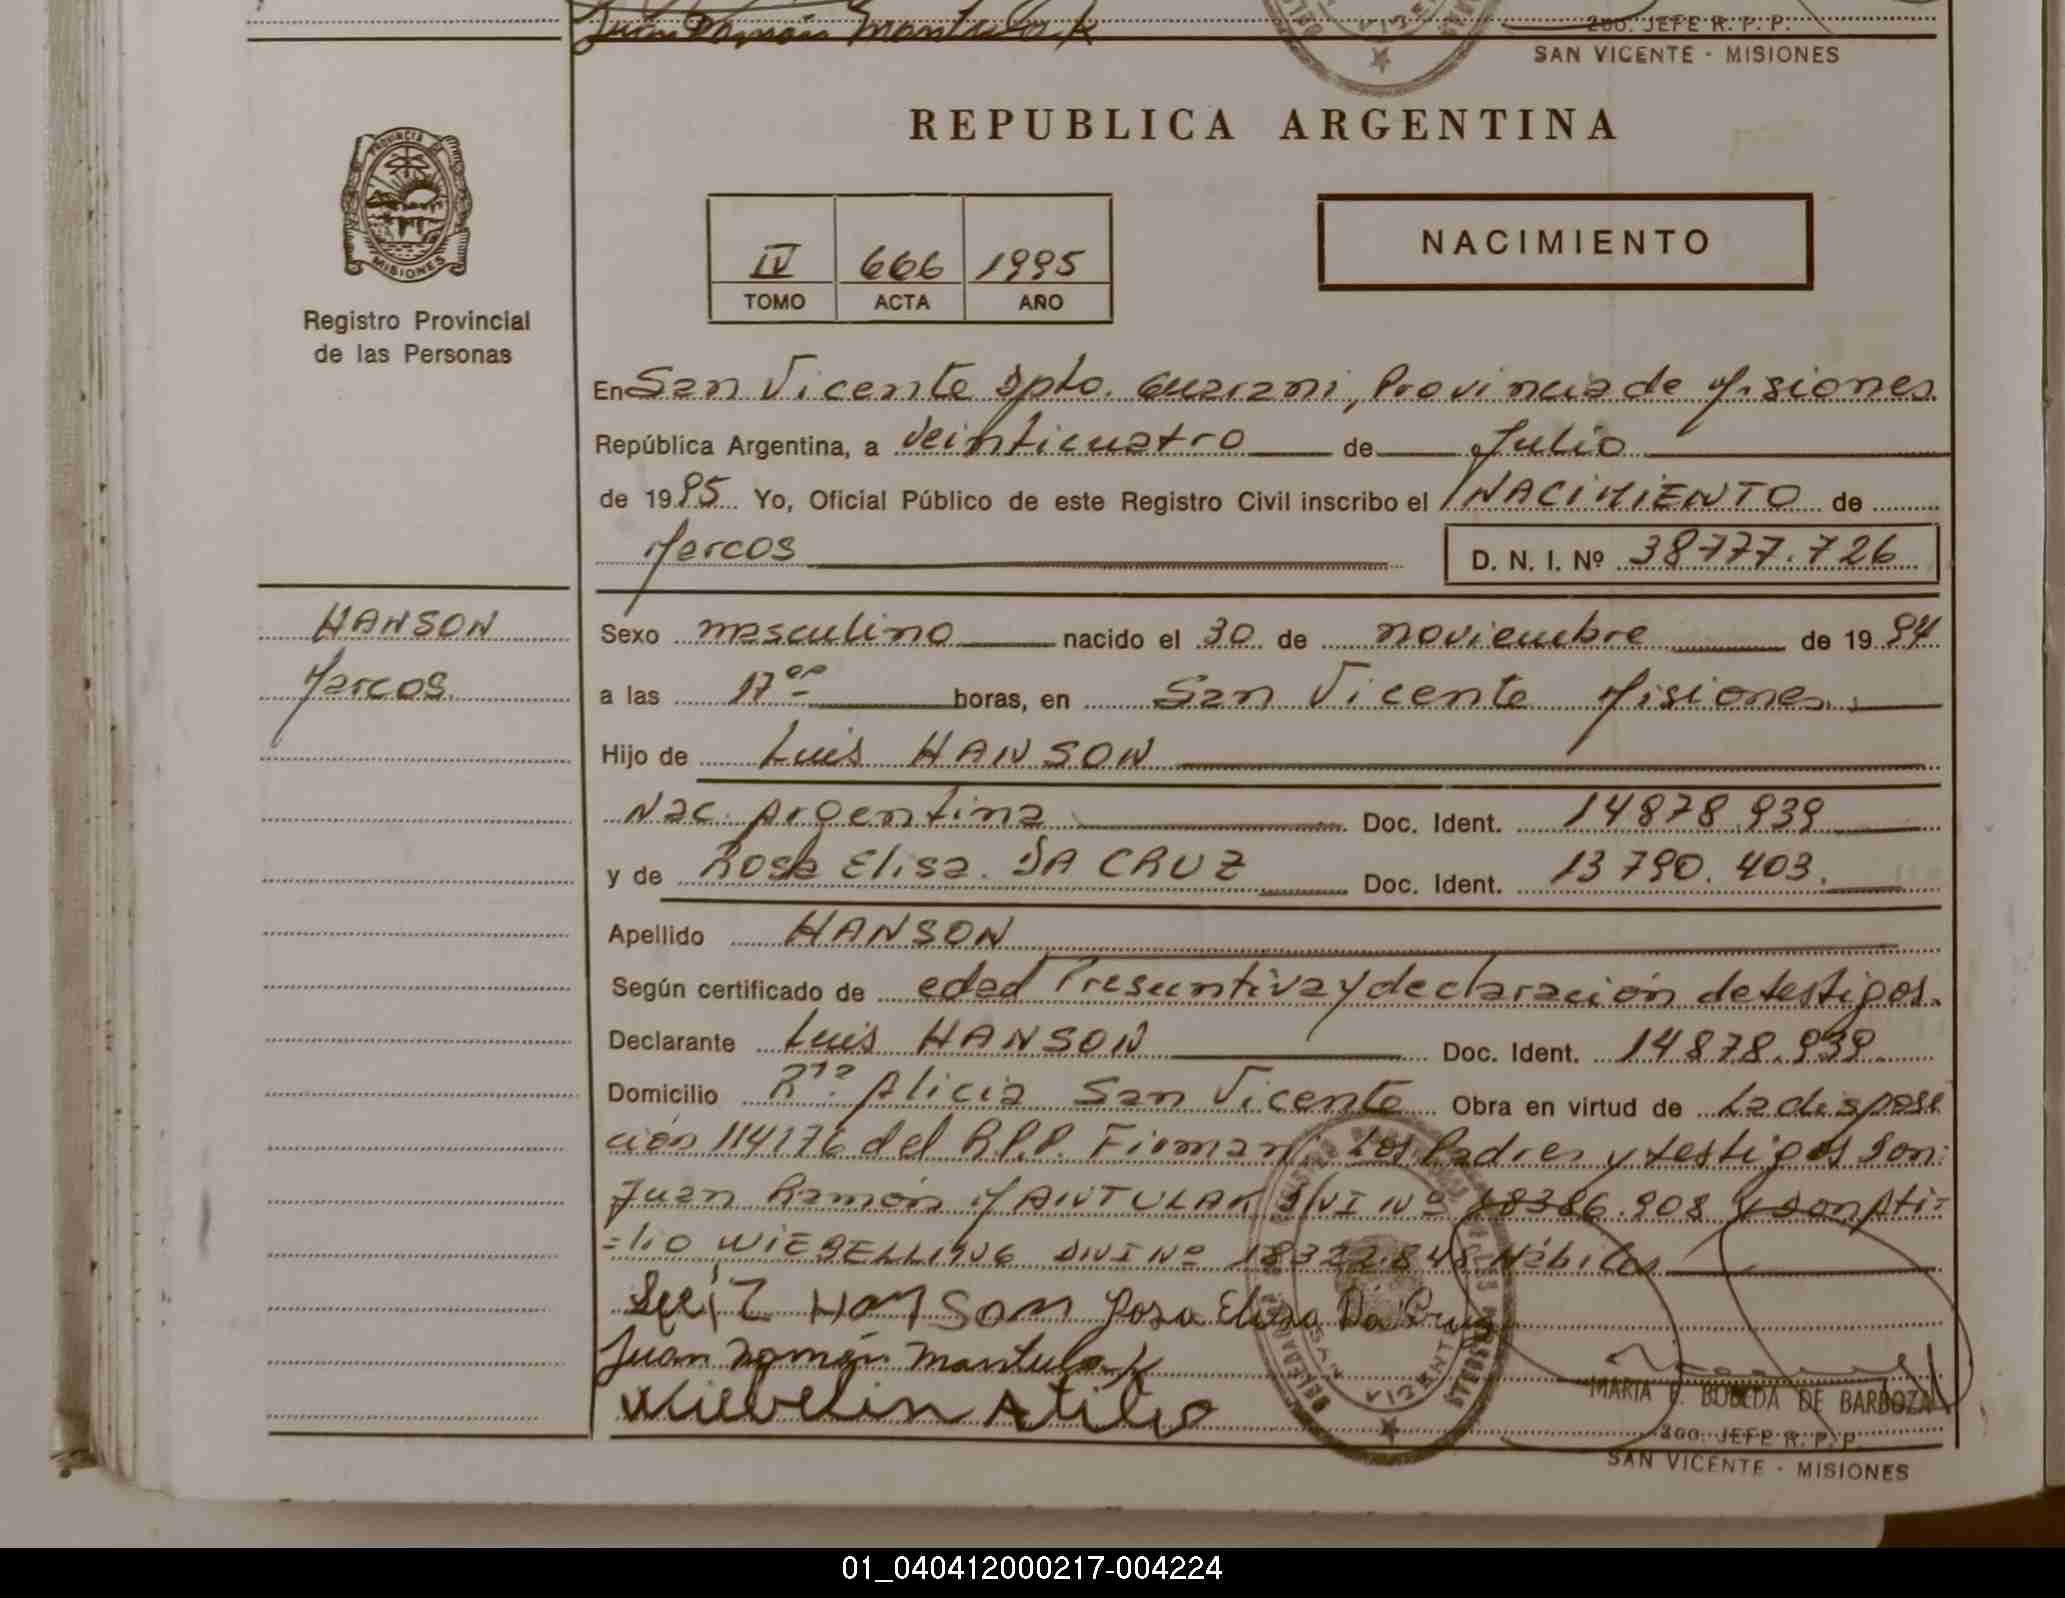 Juan Ramón Mantulak
2do. JEFE R. P. P.
SAN VICENTE - MISIONES
REPUBLICA ARGENTINA
PROVINCIA DE
MISIONES
Registro Provincial
de las Personas
IV 666 1995
TOMO ACTA AÑO
NACIMIENTO
En San Vicente Dpto. Guarani, Provincia de Misiones
República Argentina, a Veinticuatro de Julio
de 1995 Yo, Oficial Público de este Registro Civil inscribo el NACIMIENTO de
Marcos D. N. I. Nº 38777.726
HANSON
Marcos
Sexo masculino nacido el 30 de noviembre de 1994
a las 17 00 horas, en San Vicente Misiones
Hijo de Luis HANSON
Nac. Argentina Doc. Ident. 14878.939
y de Rosa Elisa. DA CRUZ Doc. Ident. 13790.403.
Apellido HANSON
Según certificado de edad Presuntiva y declaración de testigos.
Declarante Luis HANSON Doc. Ident. 14878.939
Domicilio Alicia San Vicente Obra en virtud de La disposi
ción 114176 del R.P.P. Firman: Los Padres y testigos Son:
Juan Ramón MANTULAK DNI Nº 18386.908 y don Ati=
=lio DNI Nº 18322.848 Hábiles
Luiz HanSon Rosa Elisa Da Cruz
Juan Ramón Mantulak
Wiebelin Atilio
SAN VICENTE
MARIA BOBEDA DE BARBOZA
JEFE R. P. P.
SAN VICENTE - MISIONES
01_040412000217-004224